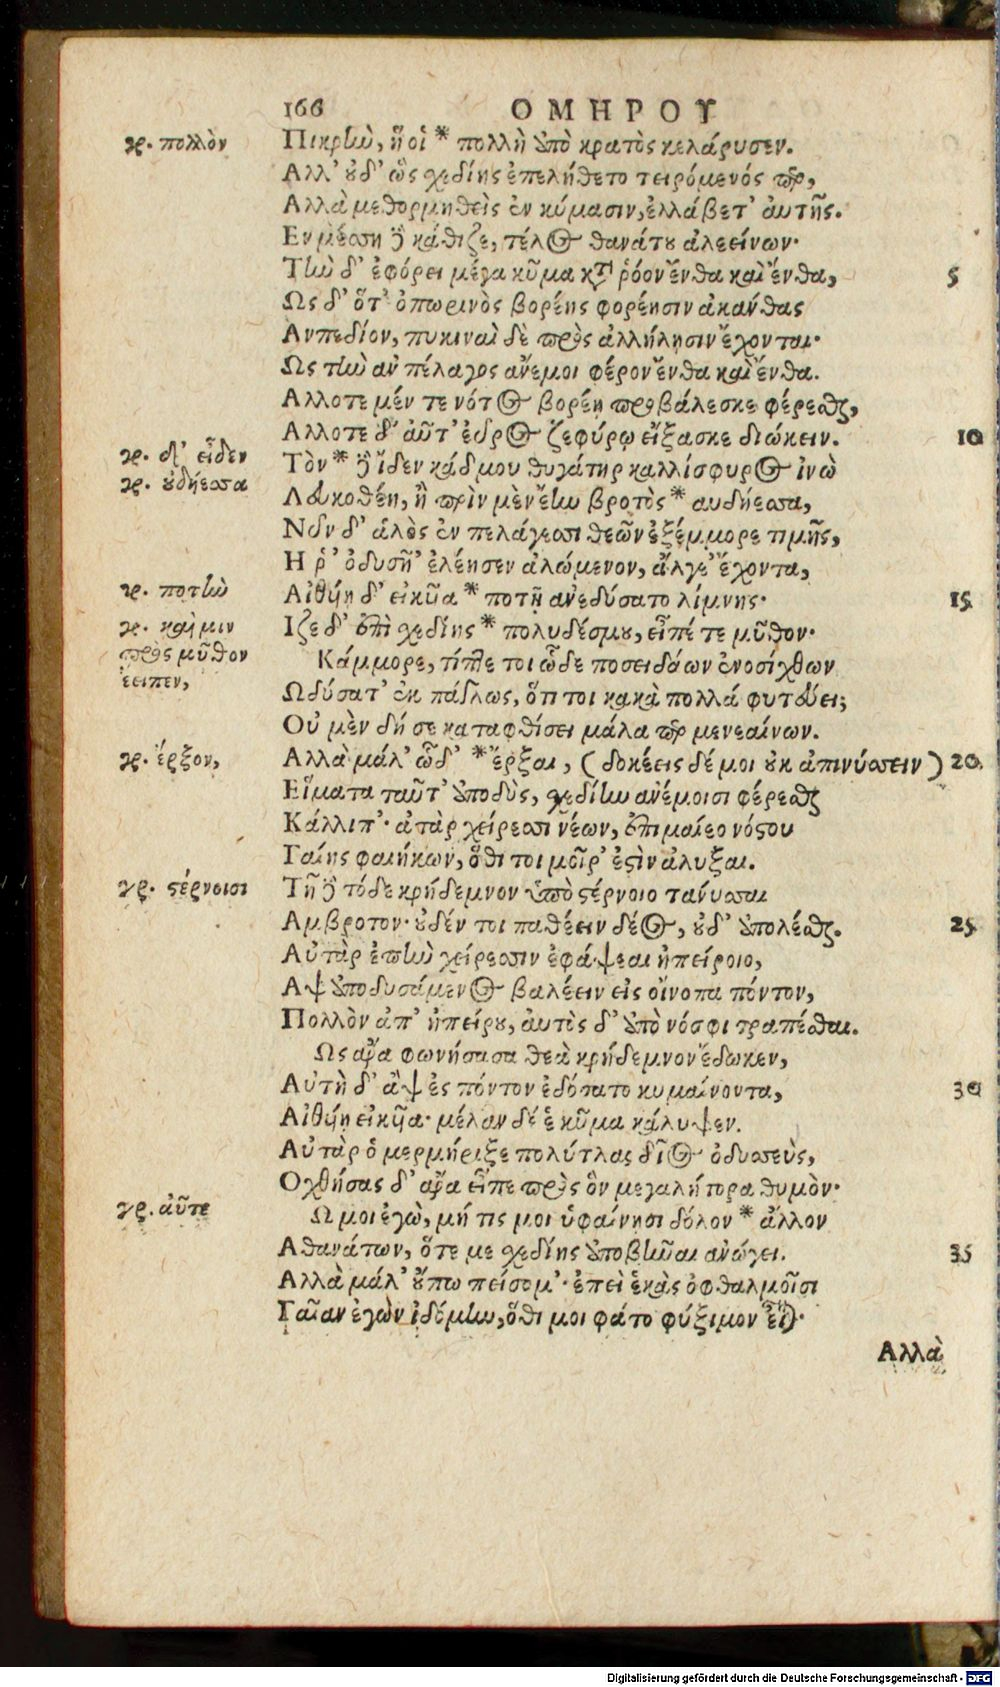 166 ΟΜΗΡΟΥ
γρ. πολλὸν
Πικρὴν, ἥ οἱ * πολλὴ ἀπὸ κρατὸς κελάρυσεν.
Αλλ' οὐδ' ὣς σχεδίης ἐπελήθετο τειρόμενός περ,
Αλλὰ μεθορμηθεὶς ἐν κύμασιν, ἐλλάβετ' αὐτῆς.
Εν μέσσῃ δὲ κάθιζε, τέλος θανάτου ἀλεείνων·
Τὴν δ' ἐφόρει μέγα κῦμα κατὰ ῥόον ἔνθα καὶ ἔνθα, 5
Ως δ' ὅτ' ὀπωρινὸς βορέης φορέῃσιν ἀκάνθας
Αν πεδίον, πυκιναὶ δὲ πρὸς ἀλλήλῃσιν ἔχονται·
Ως τὴν ἂν πέλαγος ἄνεμοι φέρον ἔνθα καὶ ἔνθα.
Αλλοτε μέν τε νότος βορέῃ προβάλεσκε φέρεσθαι,
Αλλοτε δ' αὖτ' εὖρος ζεφύρῳ εἴξασκε διώκειν. 10
γρ. δ' εἶδεν
Τὸν * δὲ ἴδεν κάδμου θυγάτηρ καλλίσφυρος ἰνὼ
γρ. οὐδήεσσα
Λευκοθέη, ἣ πρὶν μὲν ἔην βροτὸς * αὐδήεσσα,
Νῦν δ' ἁλὸς ἐν πελάγεσσι θεῶν ἐξέμμορε τιμῆς,
Η ῥ' ὀδυσῆ' ἐλέησεν ἀλώμενον, ἄλγε' ἔχοντα,
γρ. ποτὴν
Αἰθυίῃ δ' εἰκυῖα * ποτῇ ἀνεδύσατο λίμνης· 15
γρ. καί μιν
πρὸς μῦθον
ἔειπεν,
Ιζε δ' ἐπὶ σχεδίης * πολυδέσμου, εἶπέ τε μῦθον·
Κάμμορε, τίπτε τοι ὧδε ποσειδάων ἐνοσίχθων
Ωδύσατ' ἐκ πάγλως, ὅτι τοι κακὰ πολλὰ φυτεύει;
Οὐ μὲν δή σε καταφθίσει μάλα περ μενεαίνων.
γρ. ἔρξον,
Αλλὰ μάλ' ὧδ' * ἔρξαι, (δοκέεις δέ μοι οὐκ ἀπινύσσειν) 20.
Εἵματα ταῦτ' ἀποδὺς, σχεδίην ἀνέμοισι φέρεσθαι
Κάλλιπ'· ἀτὰρ χείρεσσι νέων, ἐπιμαίεο νόστου
Γαίης φαιήκων, ὅθι τοι μοῖρ' ἐστὶν ἀλυξαι.
γρ. στέρνοισι
Τῆ δὲ τόδε κρήδεμνον ὑπὸ στέρνοιο τανύσσαι
Αμβροτον· οὐδέν τοι παθέειν δέος, οὐδ' ἀπολέσθαι. 25
Αὐτὰρ ἐπὴν χείρεσσιν ἐφάψεαι ἠπείροιο,
Αψ ἀποδυσάμενος βαλέειν εἰς οἴνοπα πόντον,
Πολλὸν ἀπ' ἠπείρου, αὐτὸς δ' ἀπὸ νόσφι τραπέσθαι.
Ως ἄρα φωνήσασα θεὰ κρήδεμνον ἔδωκεν,
Αὐτὴ δ' ἂψ ἐς πόντον ἐδύσατο κυμαίνοντα, 30
Αἰθυίῃ εἰκυῖα· μέλαν δέ ἑ κῦμα κάλυψεν.
Αὐτὰρ ὁ μερμήριξε πολύτλας δῖος ὀδυσσεὺς,
Οχθήσας δ' ἄρα εἶπε πρὸς ὃν μεγαλήτορα θυμὸν·
γρ. αὖτε
Ω μοι ἐγὼ, μή τις μοι ὑφαίνῃσι δόλον * ἄλλον
Αθανάτων, ὅτε με σχεδίης ἀποβῆναι ἀνώγει. 35
Αλλὰ μάλ' οὔπω πείσομ'· ἐπεὶ ἑκὰς ὀφθαλμοῖσι
Γαῖαν ἐγὼν ἰδόμην, ὅθι μοι φάτο φύξιμον εἶναι·
Αλλὰ
Digitalisierung gefördert durch die Deutsche Forschungsgemeinschaft - DFG